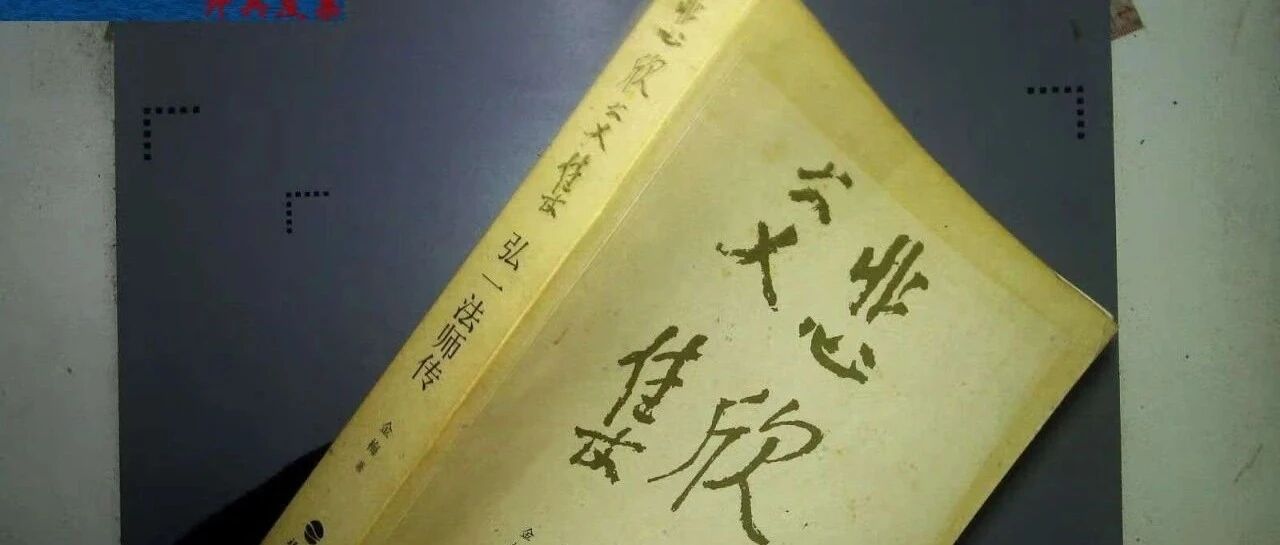 悲欣交集
弘一法师传
金梅 著
悲欣
交集
金